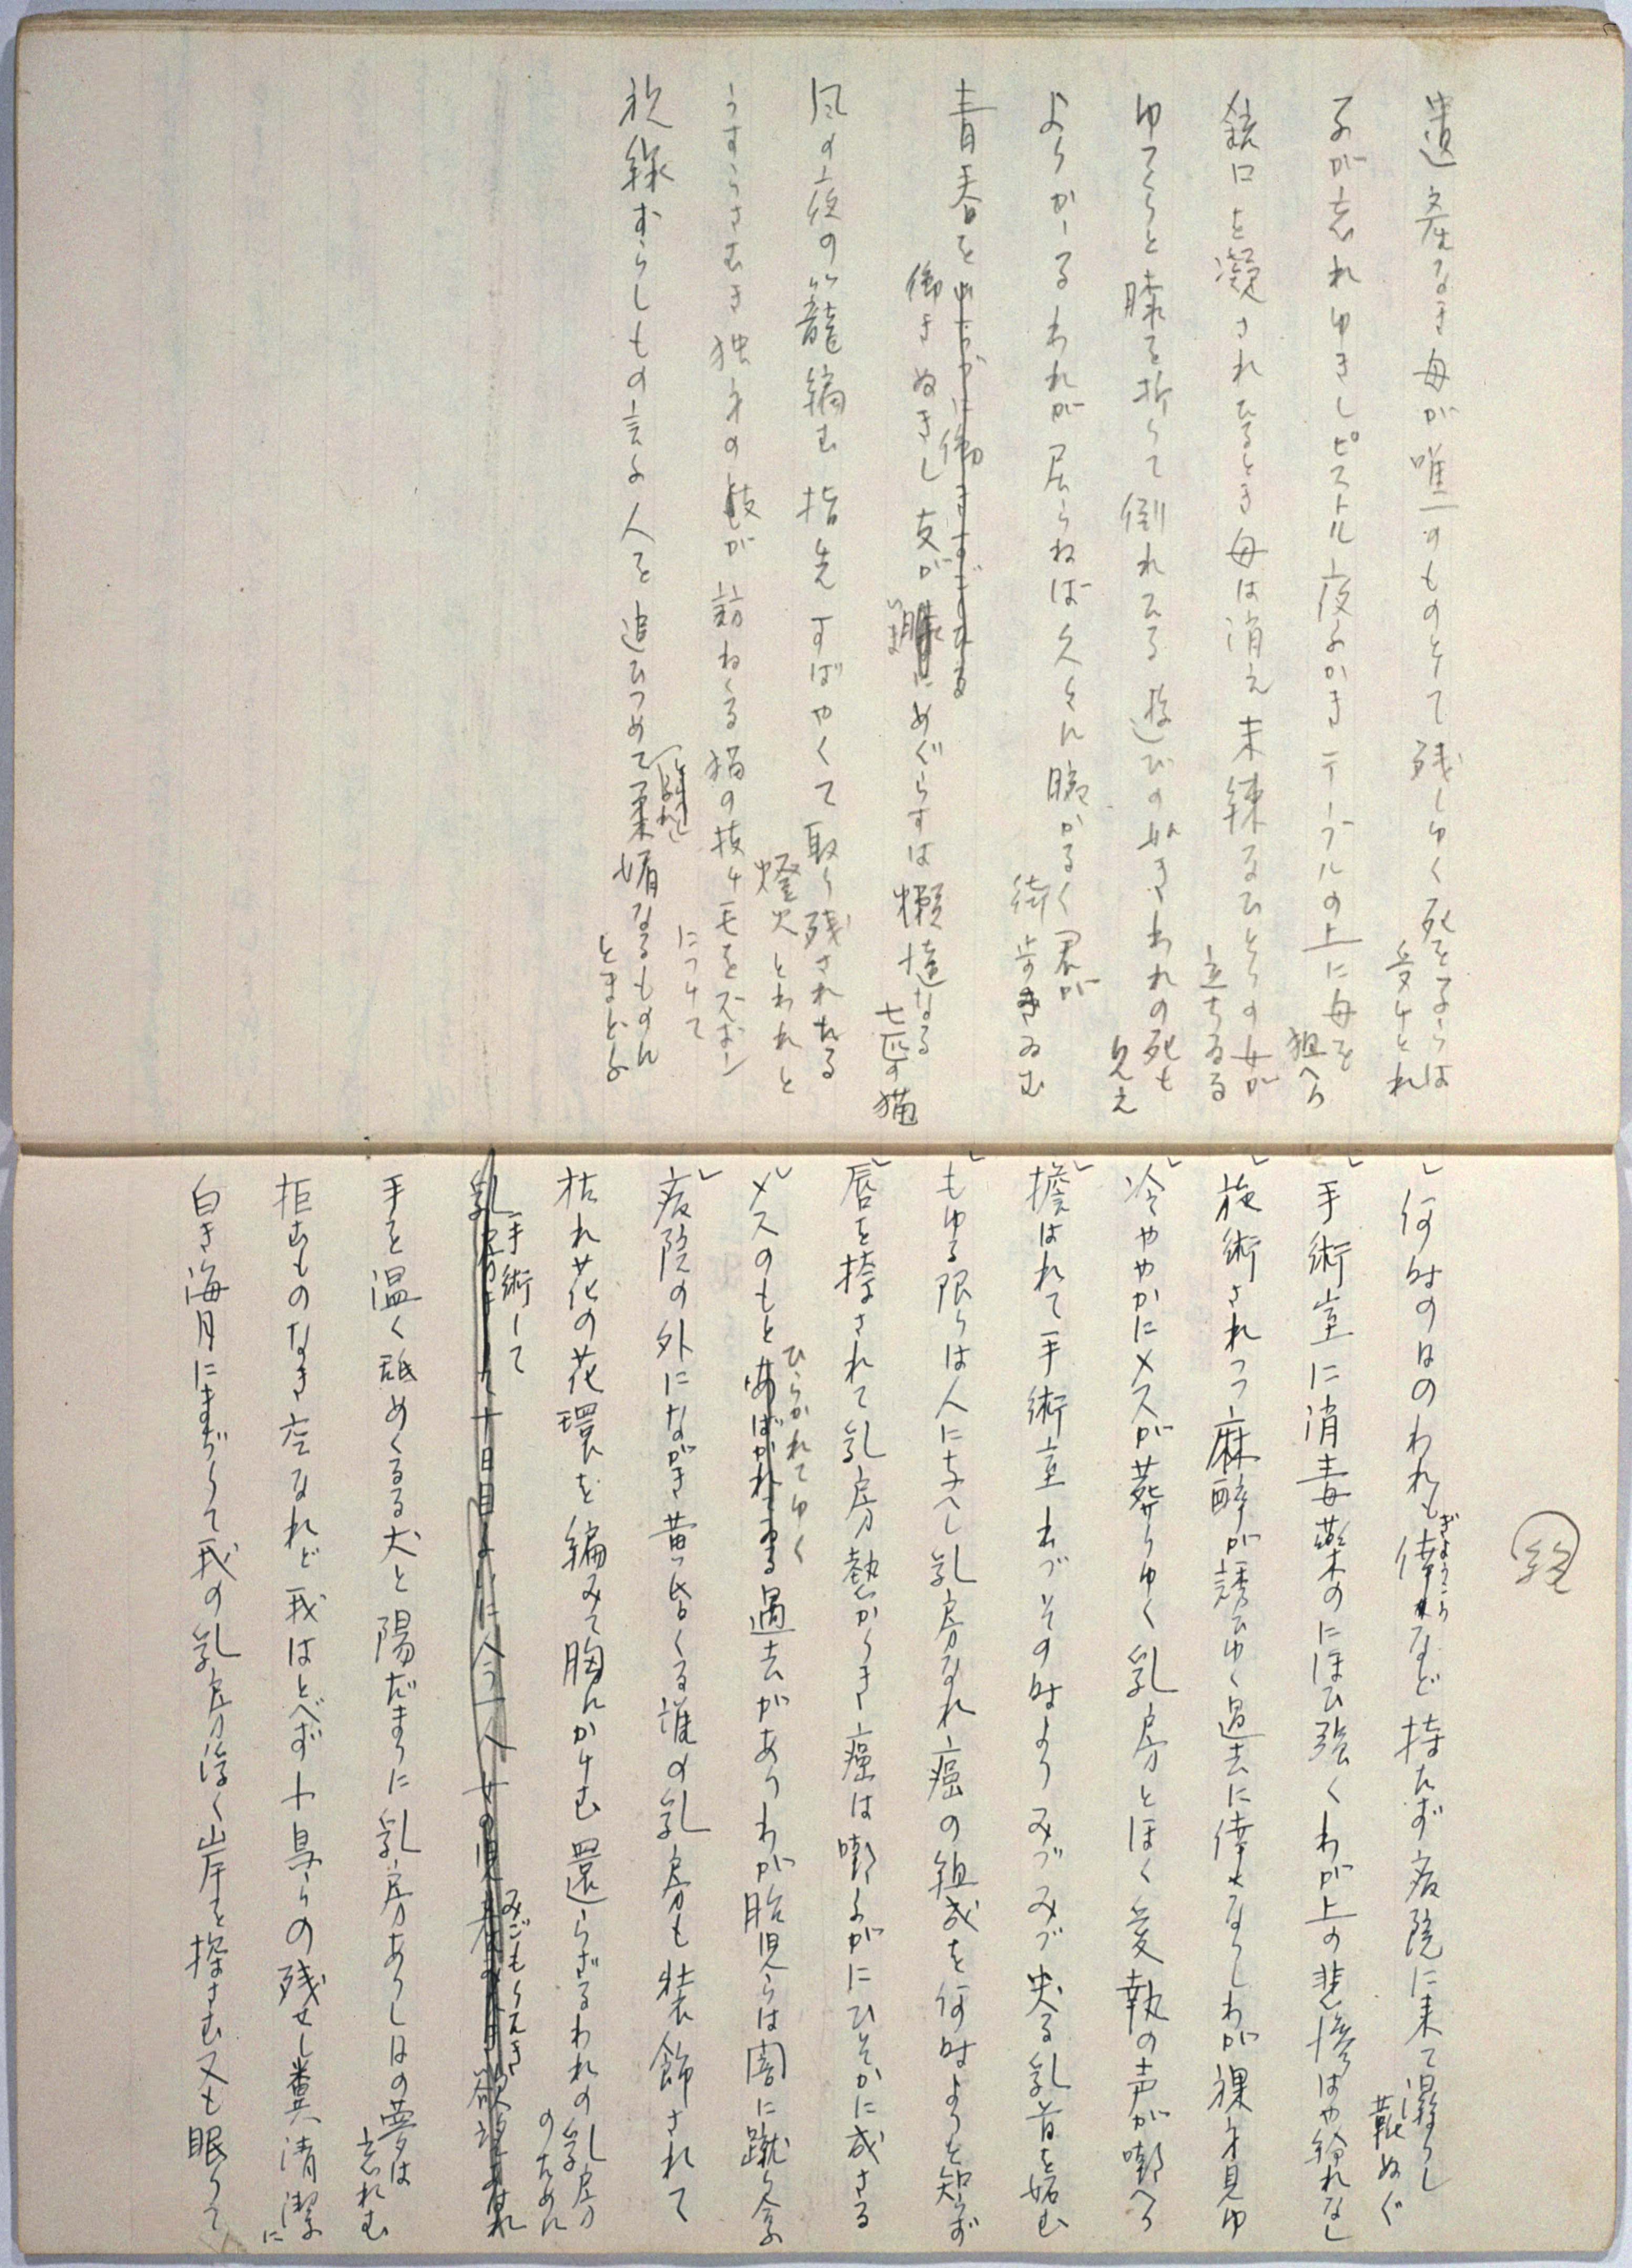 遺産なき母が唯一のものとして残しゆく死を子らは
受けとれ
子が忘れゆきしピストル夜ふかきテーブルの上に母を
狙へり
銃口を凝されゐるとき母は消え未練なひとりの女が
立ちゐる
ゆつくりと膝を折りて倒れゐる遊びの如きわれの死も
見え
よりかゝるわれが居らねば久々に脚かるく君が
街歩きゐむ
青春を
働きぬきし友がいま にめぐらすは懶惰なる
七匹の猫
風の夜の籠編む指先すばやくて取り残されたる
燈火とわれと
うすらさむき独身の友が訪ねくる猫の抜け毛をズボン
につけて
放縦すらしもの言ふ人を追ひつめて柔媚なるものに
とまどふ
絵
何時の日のわれも倖せなど持たず病院に来て湿りし
靴ぬぐ
手術室に消毒薬のにほひ強くわが上の悲惨はや紛れなし
施術されつつ麻酔が誘ひゆく過去に倖せなりしわが裸身見ゆ
冷ややかにメスが葬りゆく乳房とほく愛執の声が嘲へり
担はれて手術室いづその時よりみづみづ実る乳首を妬む
もゆる限りは人に与へし乳房なれ癌の組成を何時よりと知らず
唇を捺されて乳房熱かりき癌は嘲ふがにひそかに成さる
メスのもとひらかれてゆく過去がありわが胎児らは闇に蹴り合ふ
病院の外にながき黄昏くる誰の乳房も装飾されて
枯れ花の花環を編みて胸にかけむ還らざるわれの乳房
のために
手術して
みごもりえき
手を温く舐めくるる犬と陽だまりに乳房ありし日の夢は
忘れむ
拒むものなき空なれど我はとべず小鳥らの残せし糞清潔
に
白き海月にまじりて我の乳房浮く岸を探さむ又も眠りて